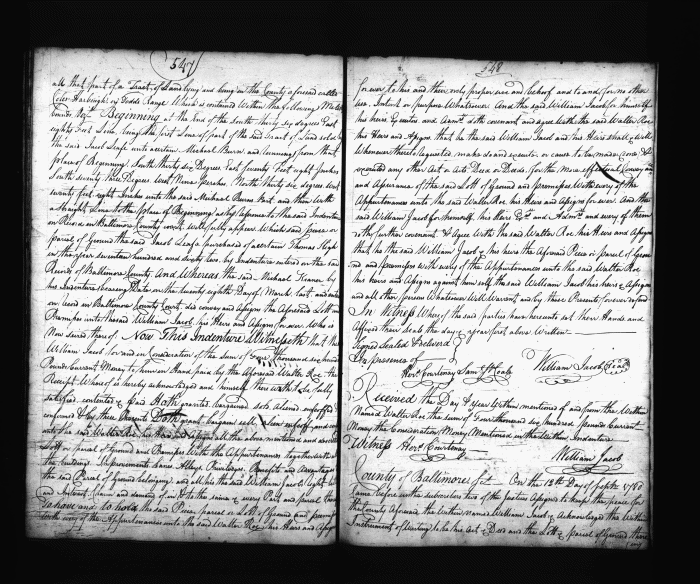 547
all that part of a Tract of Land lying and being in the County aforesaid called
Coles Harbough or Todds Range Which is contained Within the following Metes &
bounds Beginning at the End of the South thirty six degrees East
eighty feet Line being the first Line of part of the said Tract of Land sold by
the said Jacob Leafe unto a certain Michael Burn and running from that
place of Beginning South thirty six Degrees East Seventy Feet eight Inches
South seventy three Degrees West Nine perches North thirty six degrees West
seventy feet eight Inches unto the said Michael Burns part and then With
a straight Line to the place of Beginning as by reference to the said Indenture
on Record in Baltimore County Court will fully appear Which said piece or
parcel of Ground the said Jacob Leafe purchased of a certain Thomas
in the year seventeen hundred and sixty two, by Indenture entered on the
Records of Baltimore County And Whereas the said Michael
by his Indenture bearing Date on the twenty eighth Day of March Last and
on Record in Baltimore County Court, did convey and Assign the Aforesaid Lott and
Premises unto the said William Jacob his Heirs and Assigns forever Who is
Now seized thereof Now This Indenture Witnesseth that the
William Jacob for and in Consideration of the Sum of four thousand six hundred
Pounds Current Money to him in Hand paid by the Aforesaid Walter Roe the
Receipt Whereof is hereby acknowledged and himself therewith to be fully
satisfied, contented & paid Hath granted, bargained sold aliened enfeoffed
confirmed & by these Presents Doth grant bargain sell, alien enfeoff and
unto the said Walter Roe his Heirs and Assigns all the above mentioned and described
Lott or parcel of Ground and Premises With the Appurtenances together with all
the buildings Improvements Lanes Alleys Priviledges Benefits and Advantages to
the said Parcel of Ground belonging and all his the said William Jacob's right
and Interest, Claim and demand of in & to the same & every Part and parcel thereof
To have and to hold the said Piece parcel or Lott of Ground and premises
with every of the Appurtenances unto the said Walter Roe his Heirs and Assigns
548
forever to his and their only proper use and behoof and to and for no other
use, Intent or purpose Whatsoever And the said William Jacob for himself
his heirs Executors and Admrs doth covenant and agree With the said Walter Roe
his Heirs and Assigns that he the said William Jacob and his Heirs shall & Will
Whenever thereto requested make do and execute or cause to be made done &
executed any other Act or Acts Deed or Deeds for the more effectual Conveyance
and Assurance of the said Lott of Ground and premises With every of the
Appurtenances unto the said Walter Roe his Heirs and Assigns forever And the
said William Jacob for himself his Heirs Exrs and Admrs and every of them
doth further covenant & Agree With the said Walter Roe his Heirs and Assigns
that he the said William Jacob & his heirs the Aforesd Piece or parcel of Ground
and premises with every of the Appurtenances unto the said Walter Roe
his heirs and Assigns against him self the said William Jacob his heirs & Assigns
and all other persons Whatsoever Will Warrant and by these Presents forever defend
In Witness Where of the said parties have hereunto set their Hands and
Affixed their Seals the day & year first above Written
Signed Sealed & Delivered
In presence of
Hers Courtenay Saml
William Jacob Seal
Received the Day & Year Within mentioned of and from the Within
Named Walter Roe the sum of Four thousand six hundred pounds Current
Money the Consideration Money Mentioned in the Within Indenture
Witness Hers Courtenay
William Jacob
County of Baltimore On the 18th Day of Septr 1780
Came before us the subscribers two of the Justices Assigned to keep the peace for
the County Aforesaid the Within Named William Jacob & Acknowledged the Within
Instrument of Writing to be his Act & Deed and the Lott & parcel of Ground therein